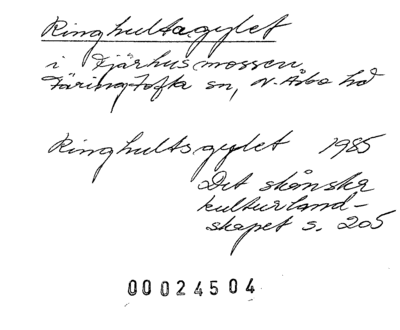 Ringhultagylet
i Fjärhusmossen
Färingtofta sn, N. Åsbo hd
Ringhultsgylet 1985
Det skånska
kulturland-
skapet s. 205
00024504